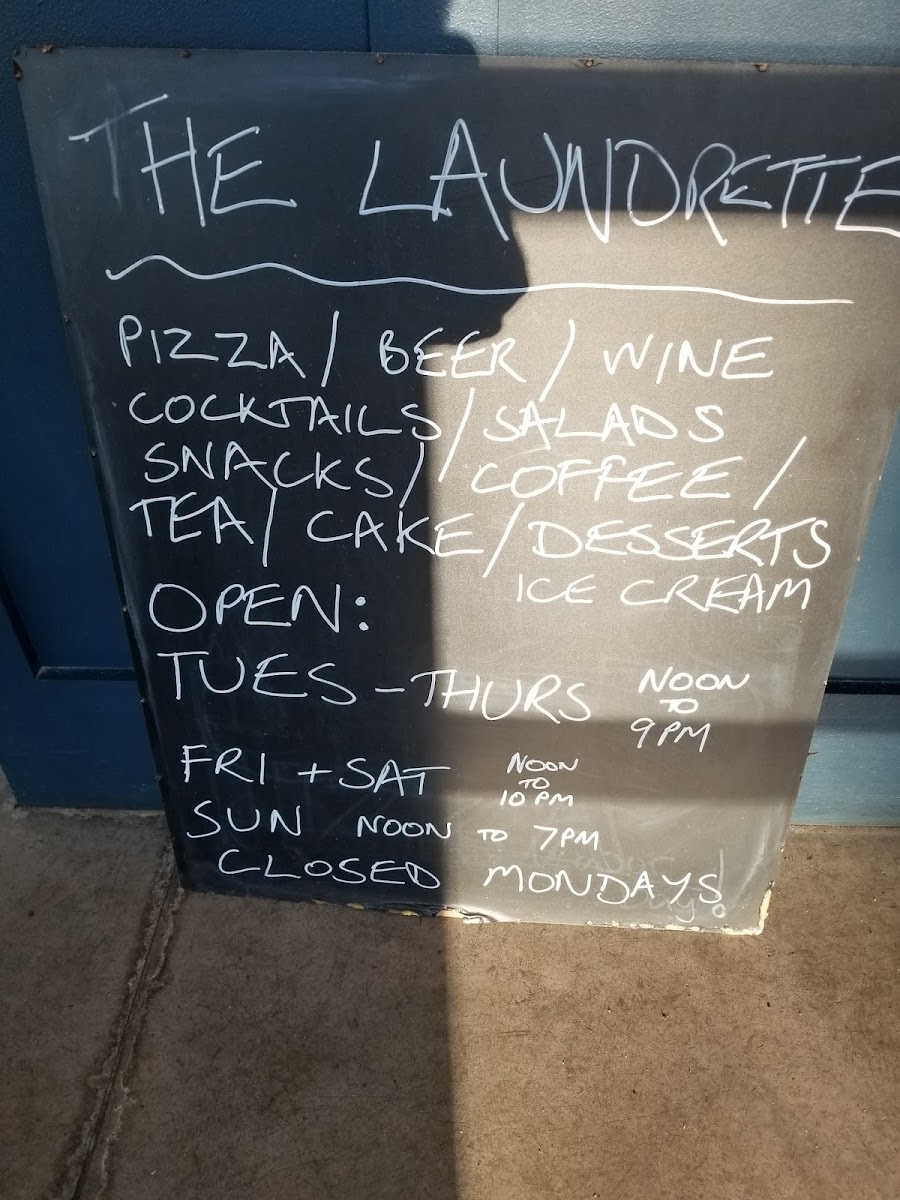 THE LAUNDRETTE
PIZZA / BEER / WINE
COCKTAILS / SALADS
SNACKS / COFFEE /
TEA / CAKE / DESSERTS
ICE CREAM
OPEN:
TUES - THURS NOON TO 9PM
FRI + SAT NOON TO 10PM
SUN NOON TO 7PM
CLOSED MONDAYS!